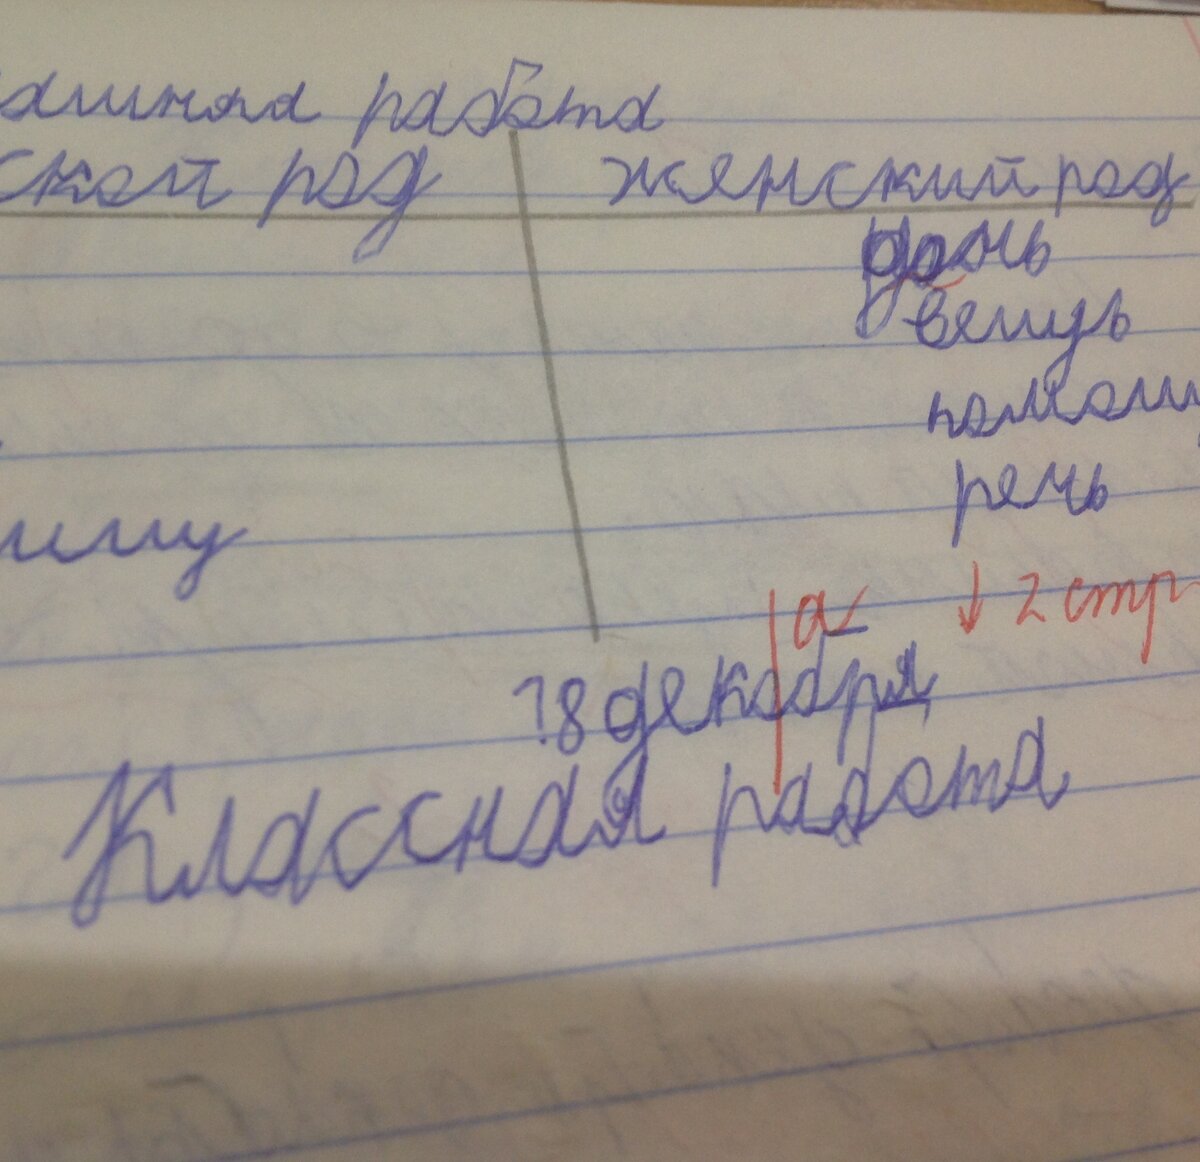 ашняя работа
ской род женский род
дочь
вещь
помощ
речь
↓ 2 стр
а
18 декобря
Классная работа